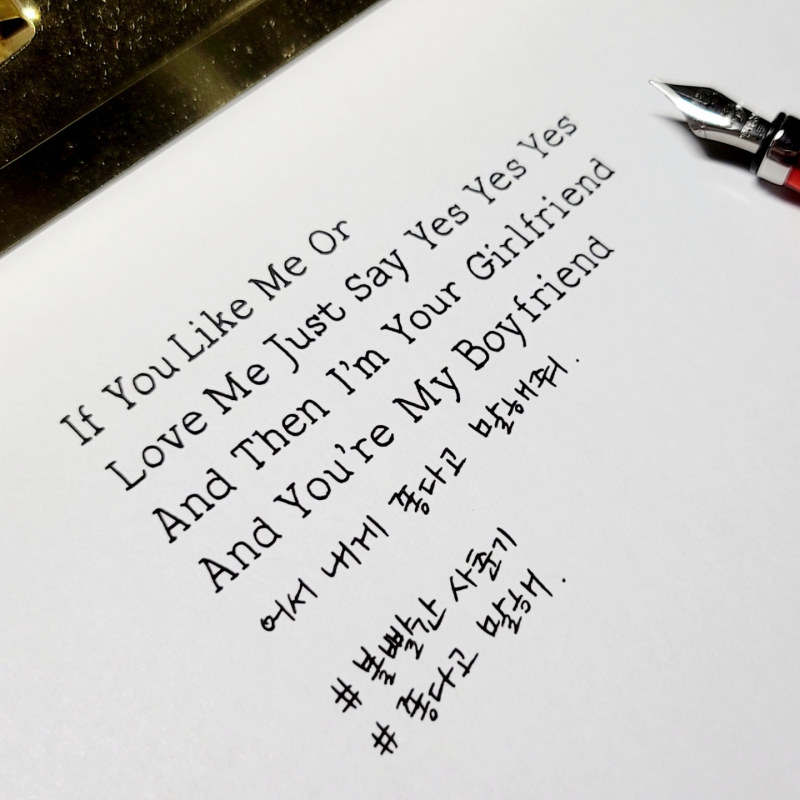 If You Like Me Or
Love Me Just Say Yes Yes Yes
And Then I'm Your Girlfriend
And You're My Boyfriend
어서 내게 좋다고 말해줘.
# 볼빨간 사춘기
# 좋다고 말해.